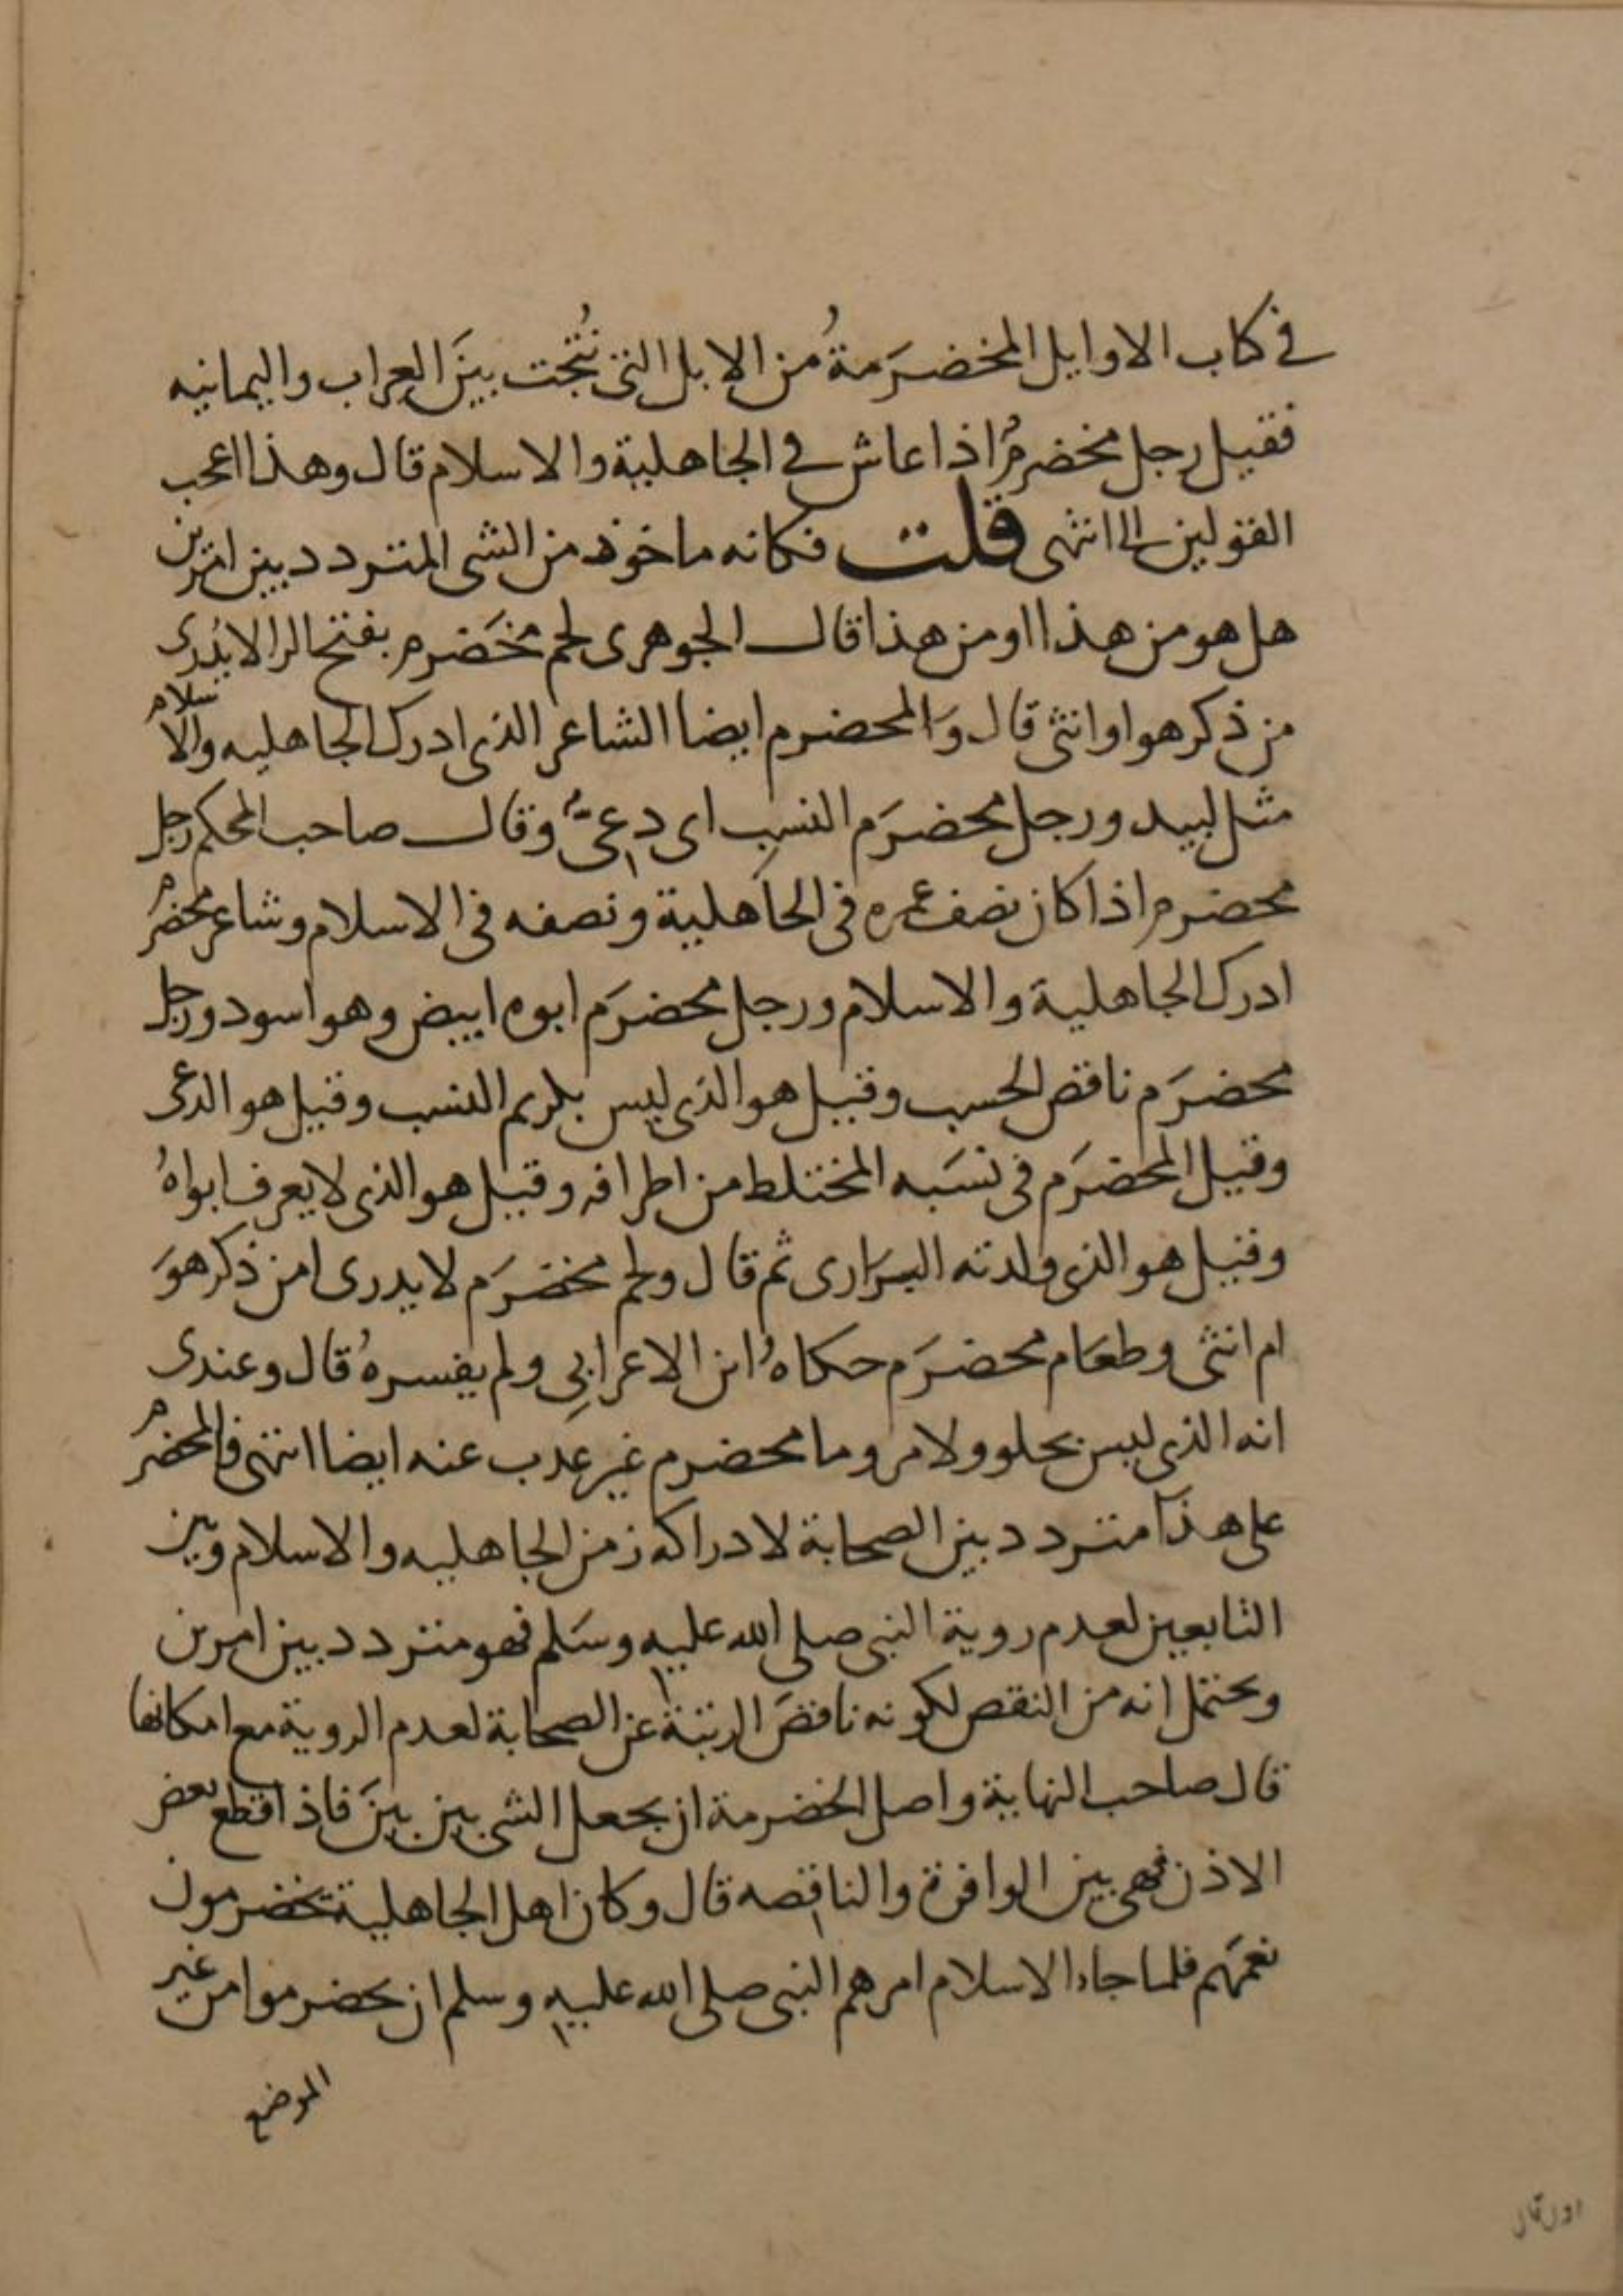 في كتاب الاوايل المخضرَمةُ من الابل التي نُتجت بينَ العراب واليمانيه
فقيل رجل مخضرمٌ اذا عاش في الجاهلية والاسلام قال وهذا اعجب
القولين الي انتهى قلت فكانه ماخوذ من الشي المتردد بين امرين
هل هو من هذا او من هذا قال الجوهرى لحم مخَضرم بفتح الرا لايُدرى
من ذكر هو او انثى قال وَالمحضرم ايضا الشاعر الذي ادرك الجاهليه والاسلام
مثل لبيد ورجل محضرَم النسب اى دِعىٌّ وقال صاحب المحكم رجل
محضرم اذا كان نصف عمره في الجاهلية ونصفه في الاسلام وشاعر محضرم
ادرك الجاهلية والاسلام ورجل محضرَم ابوه ابيض وهو اسود ورجل
محضرَم ناقص الحسب وقيل هو الذي ليس بكريم النسب وقيل هو الدعى
وقيل المحضرَم في نسَبه المختلط من اطرافه وقيل هو الذي لا يعرف ابواهُ
وقيل هو الذي ولدته السرَارى ثم قال ولحم مخضرَم لا يدرى امن ذكر هوَ
ام انثى وطعَام محضرَم حكاهُ ابن الاعرابِي ولم يفسرهُ قال وعندى
انه الذي ليس بحلو ولا مر وما محضرم غير عذب عنه ايضا انتهى فالمحضرم
على هذا متردد بين الصحابة لادراكه زمن الجاهليه والاسلام وبين
التابعين لعدم روية النبي صلى الله عليه وسَلم فهو متردد بين امرين
ويحتمل انه من النقص لكونه ناقصَ الرتبة عن الصحابة لعدم الروية مع امكانها
قال صاحب النهاية واصل الخضرمة ان يجعل الشي بين بينَ فاذا قطع بعض
الاذن فهي بين الوافرة والناقصه قال وكان اهل الجاهلية يخضرمون
نعمَهم فلما جاء الاسلام امرهم النبي صلى الله عليه وسلم ان يحضرموا من غير
الموضع